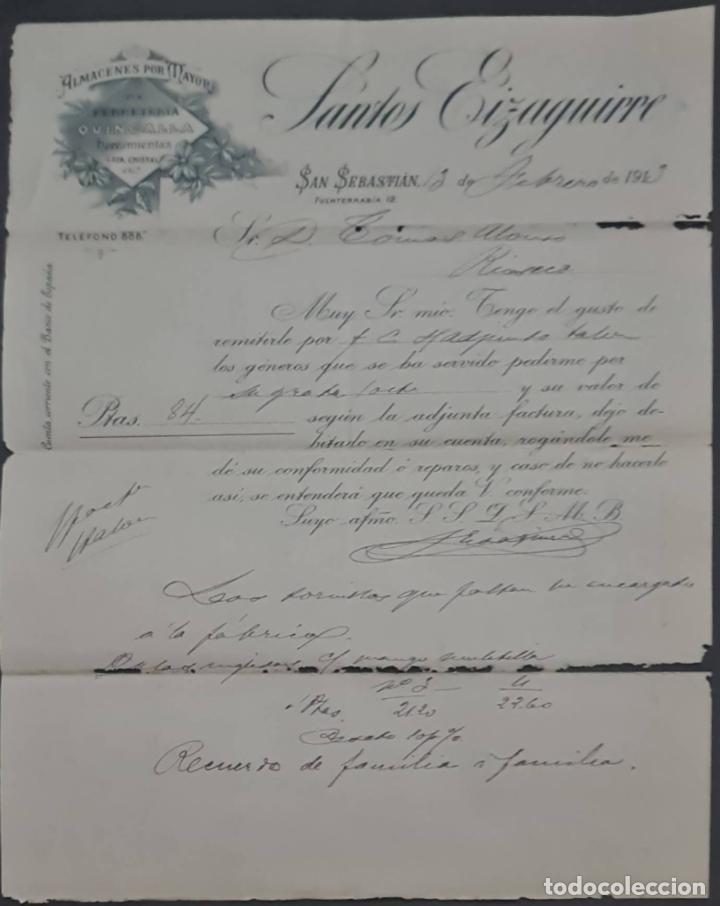 ALMACENES POR MAYOR
DE
FERRETERÍA
QUINCALLA
Herramientas
LOZA, CRISTAL
Santos Eizaguirre
SAN SEBASTIÁN, 13 de Febrero de 1913
FUENTERRABÍA 12
TELÉFONO 888
Sr. D. Tomás Alonso
Rioseco
Cuenta corriente con el Banco de España
Muy Sr. mío: Tengo el gusto de
remitirle por f C
los géneros que se ha servido pedirme por
su grata y su valor de
Ptas. 84 según la adjunta factura, dejo de-
bitado en su cuenta, rogándole me
dé su conformidad ó reparos, y caso de no hacerlo
así, se entenderá que queda V. conforme.
Suyo afmo. S. S. Q. S. M. B.
Los tornillos que faltan he encargado
á la fábrica.
inglesas c/ mango
nº 3 4
Ptas 21.20 22.60
10 p%
Recuerdo de familia á familia.
todocoleccion.net